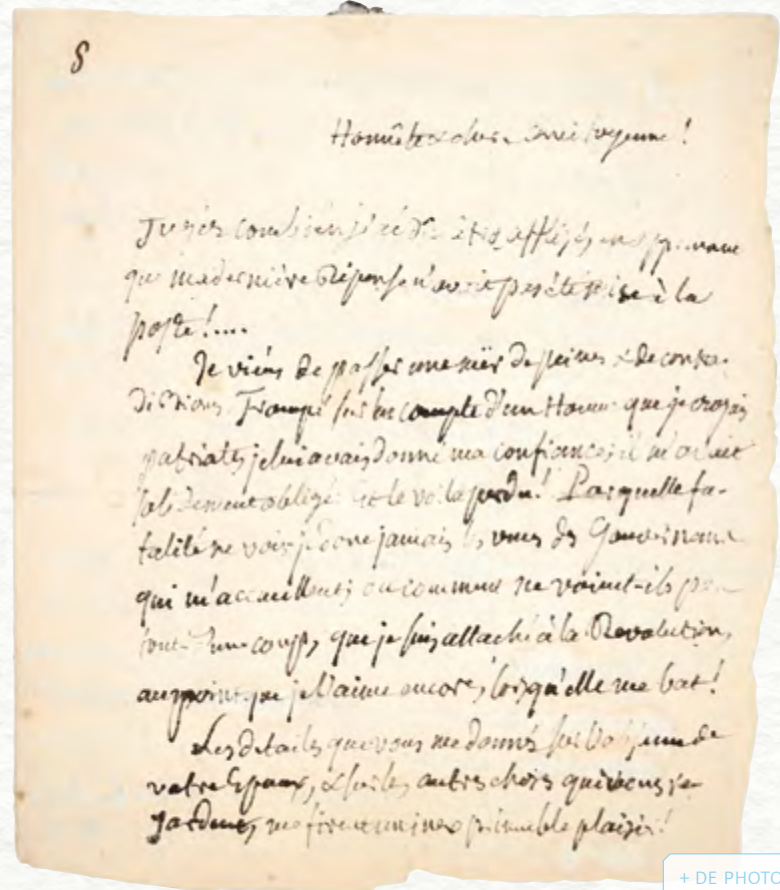 8
Honnête & chere Concitoyenne!
Jugés combien j'ai dû être affligé, en apprenant
que ma derniére Réponse n'avoit pas été mise à la
poste!....
Je viéns de passer une mër de peines & de contra-
dictions. Trompé sur le compte d'un Homme que je croyais
patriote, je lui avais donné ma confiance; il m'avait
obligé: et le voila perdu! Par quelle fa-
talité ne vois-je donc jamais les vues des Gouvernans
qui m'accueillent; ou comment ne voient-ils pas
tout-d'un-coup, que je suis attaché à la Revolution,
au point que je l'aime encore, lorsqu'elle me bat!
Les détails que vous me donnés sur
votre Epoux, & sur les autres choses qui vous re-
gardent, me firent un inexprimable plaisir!
+ DE PHOTO